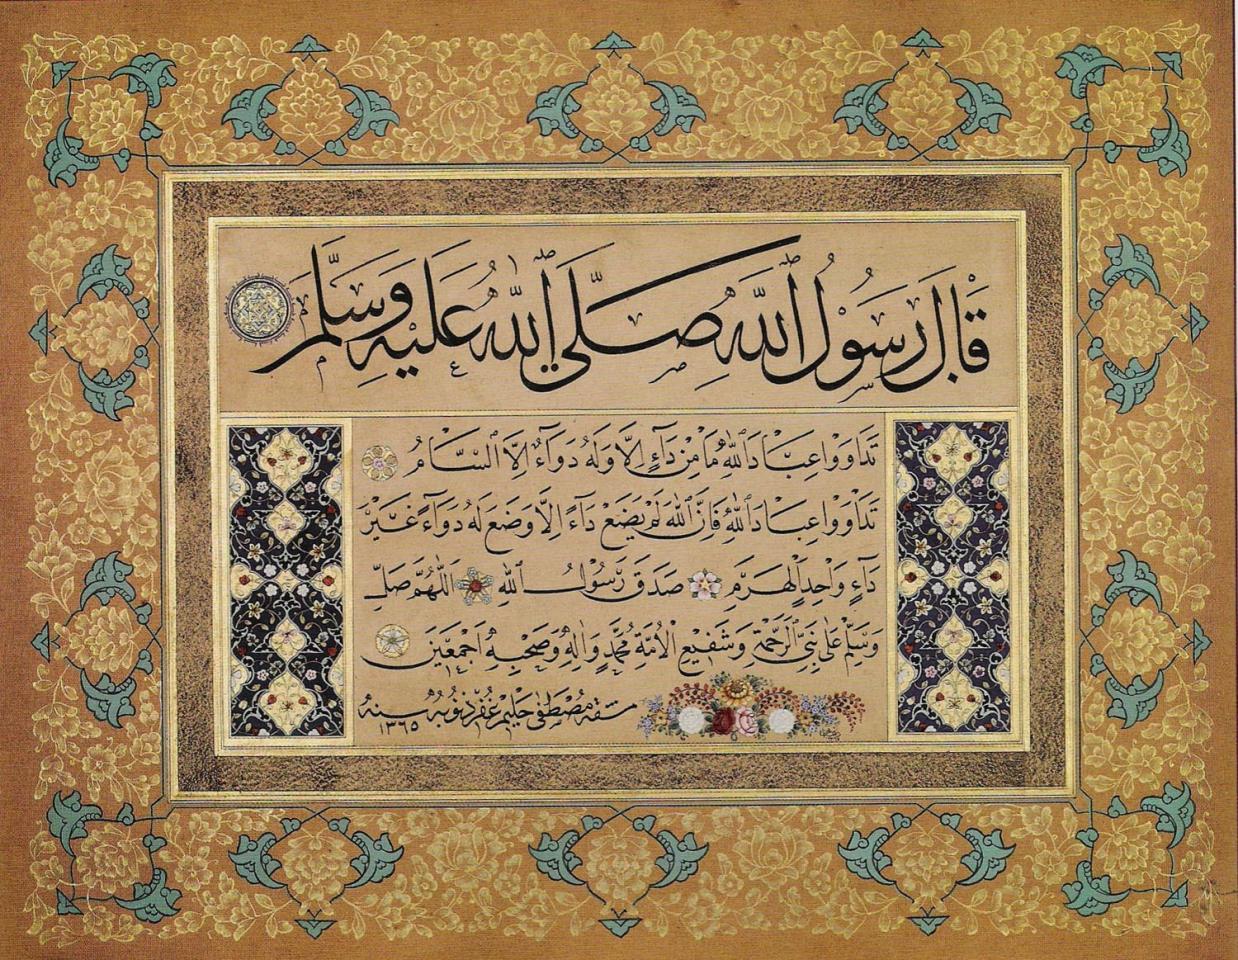 قَالَ رَسُولُ اللّٰهِ صَلَّى اللّٰهُ عَلَيْهِ وَسَلَّمَ
تَدَاوَوْا عِبَادَ اللّٰهِ مَا مِنْ دَٓاءٍ اِلَّا وَلَهُ دَوَٓاءٌ اِلَّا السَّامُ
تَدَاوَوْا عِبَادَ اللّٰهِ فَاِنَّ اللّٰهَ لَمْ يَضَعْ دَٓاءً اِلَّا وَضَعَ لَهُ دَوَٓاءً غَيْرَ
دَٓاءٍ وَاحِدٍ الْهَرَمِ صَدَقَ رَسُولُ اللّٰهِ اَللّٰهُمَّ صَلِّ
وَسَلِّمْ عَلٰى نَبِيِّ الرَّحْمَةِ وَشَفِيعِ الْاُمَّةِ مُحَمَّدٍ وَاٰلِهِ وَصَحْبِهِ اَجْمَعِينَ
مشقه مصطفى حليم غفر ذنوبه سنه ١٣٦٥